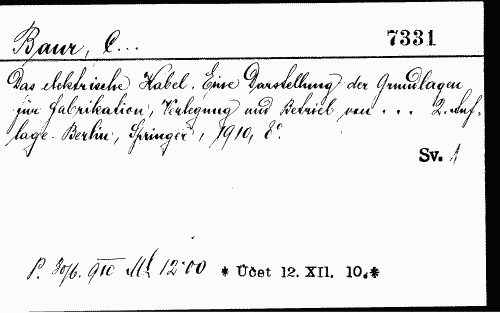 Baur, C...
7331
Das elektrische Kabel. Eine Darstellung der Grundlagen
für Fabrikation, Verlegung und Betrieb von ... 2. Auf-
lage. Berlin, Springer, 1910, 8°.
Sv. 1
12.00 * Účet 12. XII. 10.*